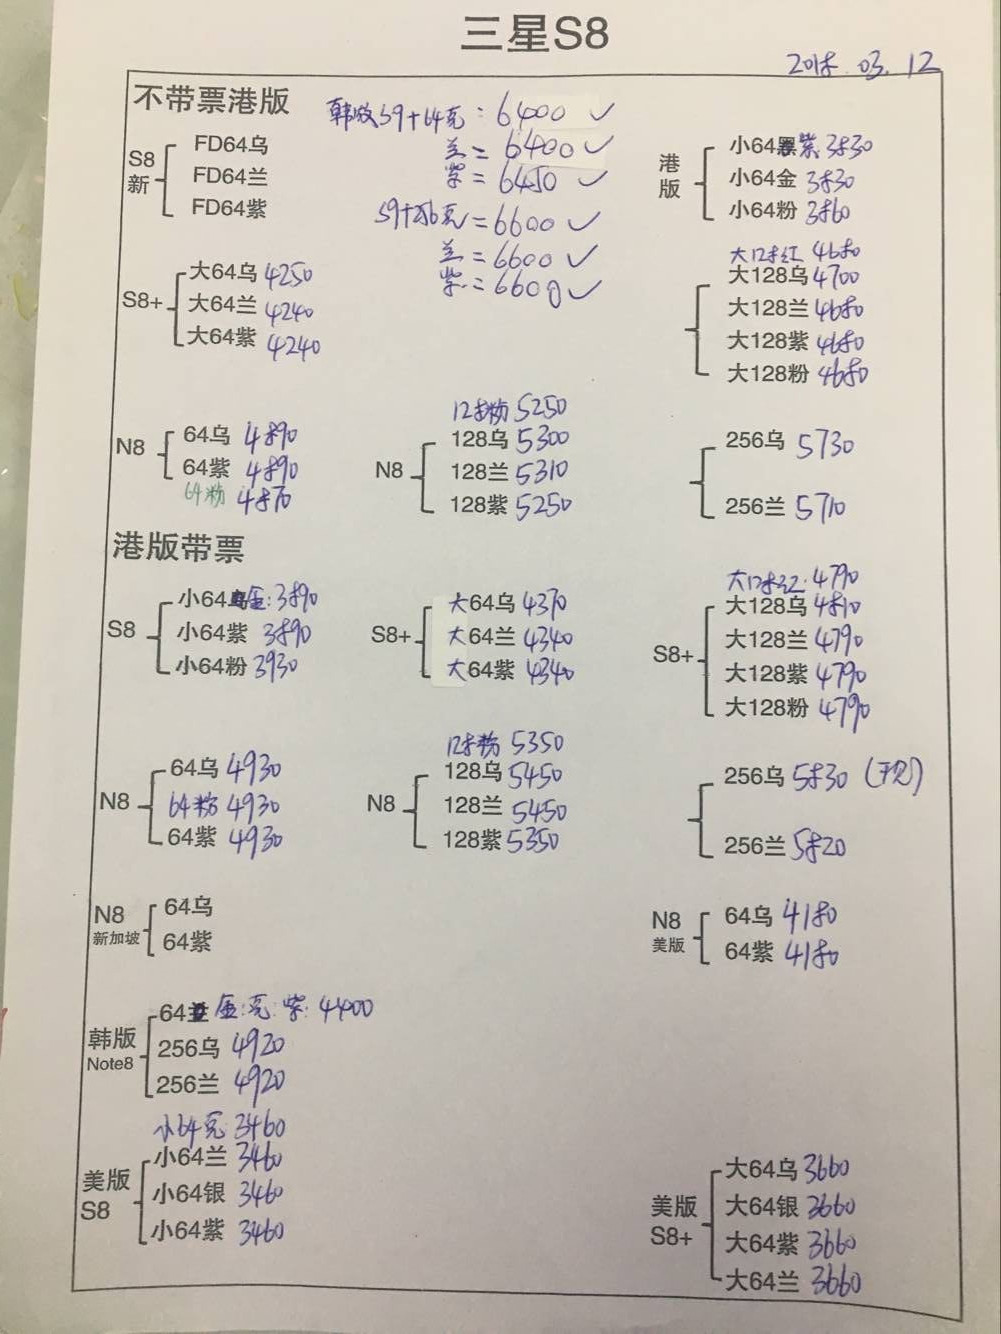 三星S8
2018.03.12
不带票港版
韩版S9+64亮:6400 ✓
兰=6400 ✓
紫=6450 ✓
S9+256亮=6600 ✓
兰=6600 ✓
紫=6600 ✓
S8新
FD64乌
FD64兰
FD64紫
港版
小64黑紫3830
小64金 3830
小64粉 3860
S8+
大64乌 4250
大64兰 4240
大64紫 4240
大128红 4680
大128乌 4700
大128兰 4680
大128紫 4680
大128粉 4680
N8
64乌 4890
64紫 4890
64粉 4870
N8
128粉 5250
128乌 5300
128兰 5310
128紫 5250
256乌 5730
256兰 5710
港版带票
S8
小64乌金:3890
小64紫 3890
小64粉 3930
S8+
大64乌 4370
大64兰 4340
大64紫 4340
S8+
大128红:4790
大128乌 4810
大128兰 4790
大128紫 4790
大128粉 4790
N8
64乌 4930
64粉 4930
64紫 4930
N8
128粉 5350
128乌 5450
128兰 5450
128紫 5350
256乌 5830
256兰 5820
N8
新加坡
64乌
64紫
N8
美版
64乌 4180
64紫 4180
韩版
Note8
64 金:亮:紫:4400
256乌 4920
256兰 4920
美版
S8
小64亮 3460
小64兰 3460
小64银 3460
小64紫 3460
美版
S8+
大64乌 3660
大64银 3660
大64紫 3660
大64兰 3660